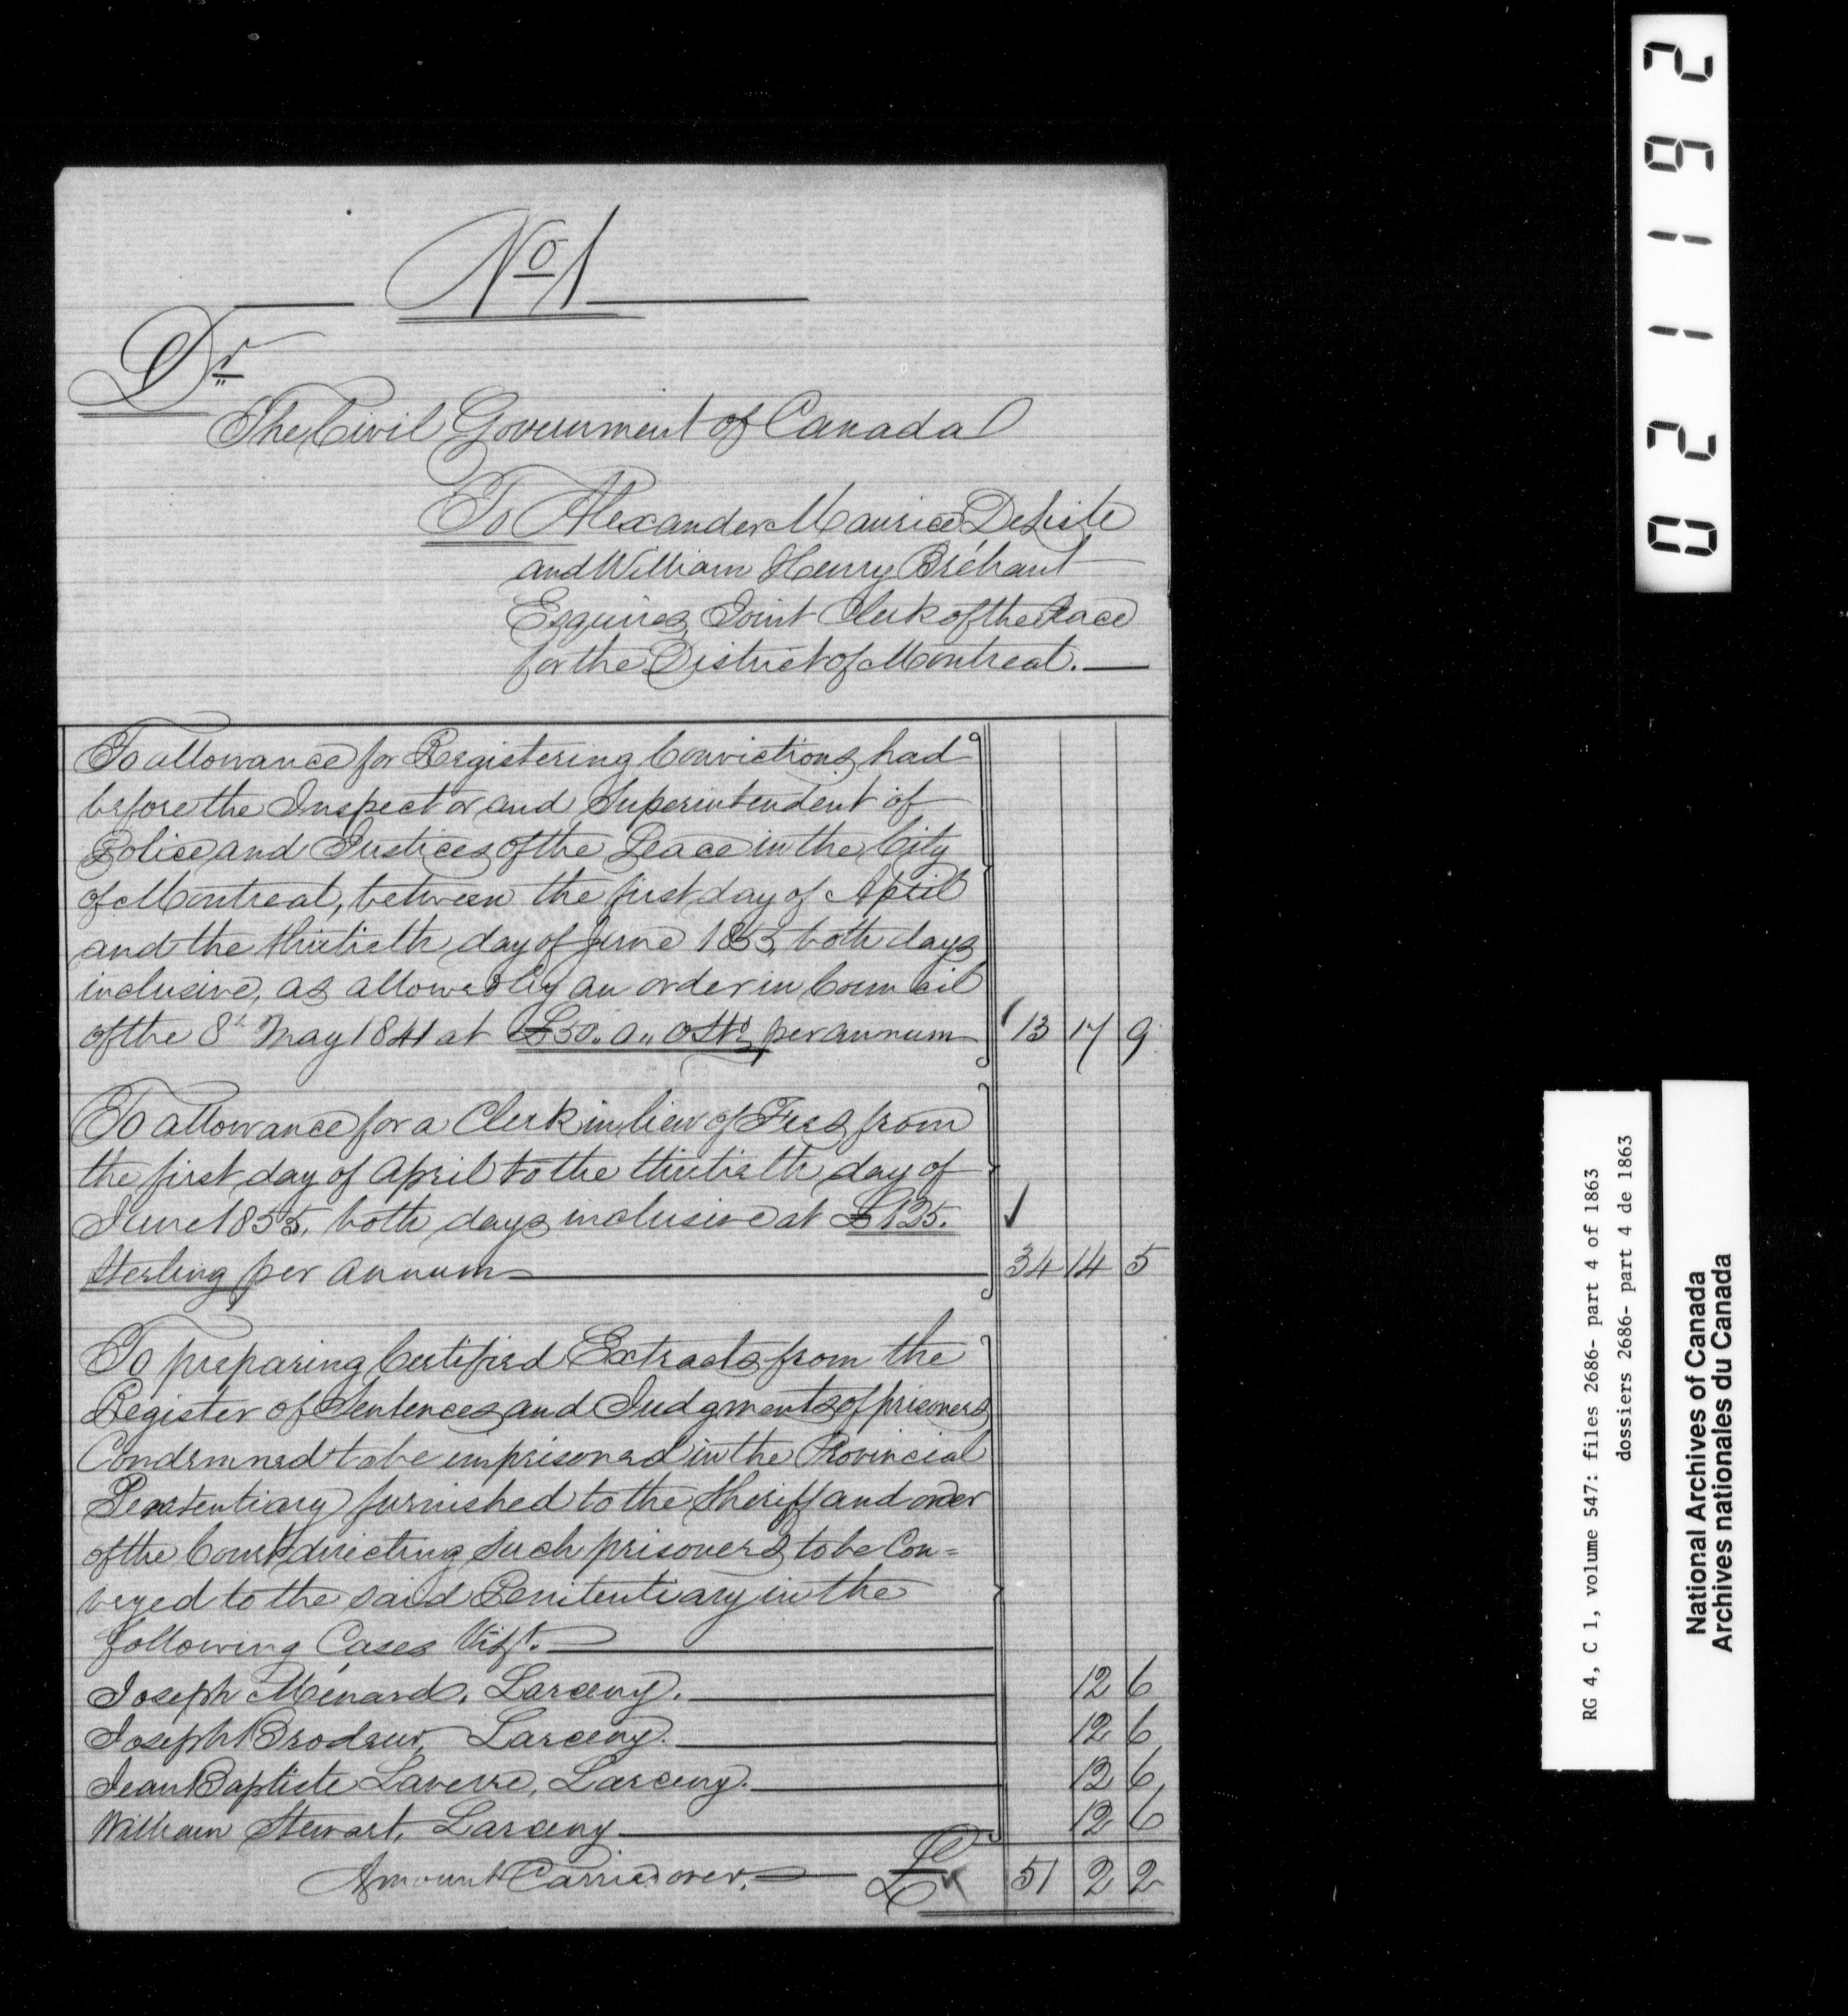 No 1
Dr
The Civil Government of Canada
To Alexander Maurice DeLisle
and William Henry Bréhaut
Esquires, Joint Clerk of the Peace
for the District of Montreal.
To allowance for Registering Convictions, had
before the Inspector and Superintendent of
Police and Justices of the Peace in the City
of Montreal, between the first day of April
and the thirtieth day of June 1853, both days
inclusive, as allowed by an order in Council
of the 8th May 1841 at £50. 0,, 0 Stg per annum 13 17 9
To allowance for a Clerk in lieu of Fees, from
the first day of April to the thirtieth day of
June 1855, both days inclusive at £125.
Sterling per annum 34 14 5
To preparing Certified Extracts from the
Register of Sentences and Judgments of prisoners
Condemned to be imprisoned in the Provincial
Penitentiary furnished to the Sheriff and order
of the Court directing such prisoners to be Con=
veyed to the said Penitentiary in the
following Cases Vizt.
Joseph Ménard, Larceny. 12 6
Joseph Brodeur, Larceny. 12 6
Jean Baptiste Laverre, Larceny. 12 6
William Stewart, Larceny 12 6
Amount Carried over. £ 51 2 2
021192
RG 4, C 1, volume 547: files 2686- part 4 of 1863
dossiers 2686- part 4 de 1863
National Archives of Canada
Archives nationales du Canada